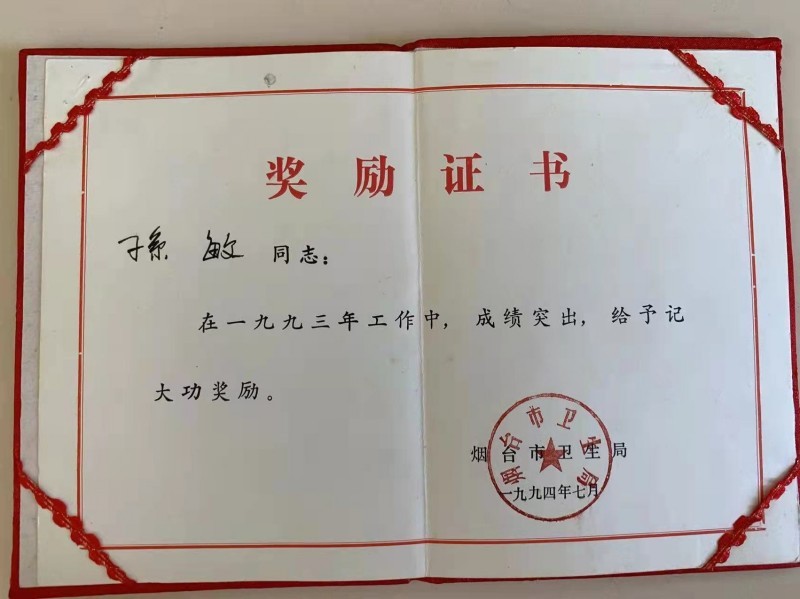 奖励证书
孫敏同志：
在一九九三年工作中，成绩突出，给予记
大功奖励。
烟台市卫生局
一九九四年七月
烟台市卫生局